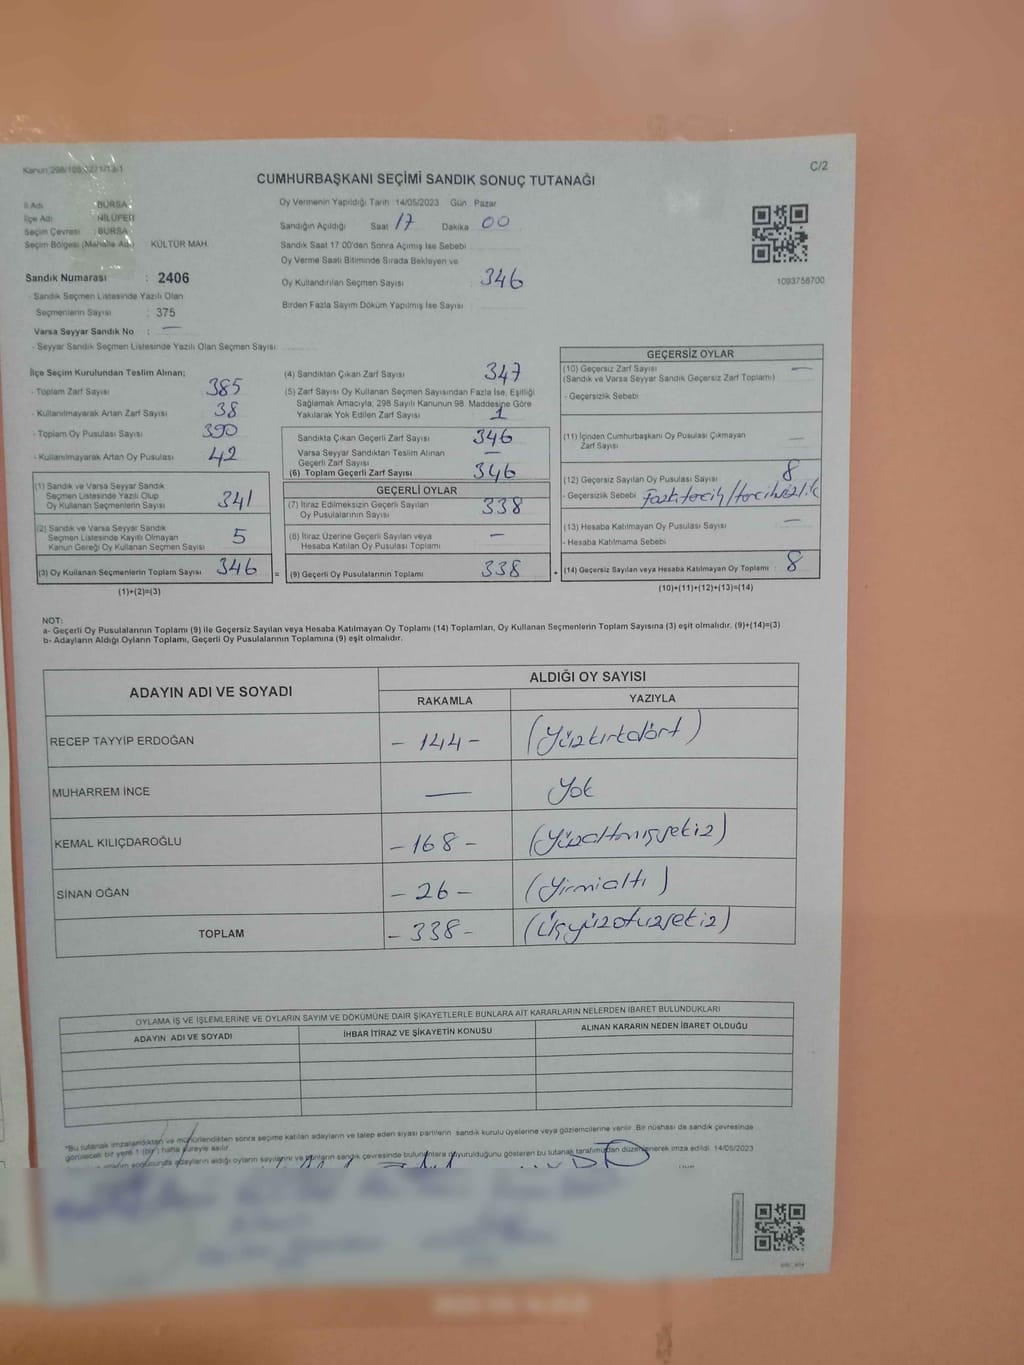 Kanun:298/105,6271/13/1
C/2
CUMHURBAŞKANI SEÇİMİ SANDIK SONUÇ TUTANAĞI
İl Adı : BURSA
İlçe Adı : NİLÜFER
Seçim Çevresi : BURSA
Seçim Bölgesi (Mahalle Adı) KÜLTÜR MAH.
Sandık Numarası : 2406
- Sandık Seçmen Listesinde Yazılı Olan
Seçmenlerin Sayısı : 375
Varsa Seyyar Sandık No : —
- Seyyar Sandık Seçmen Listesinde Yazılı Olan Seçmen Sayısı
Oy Vermenin Yapıldığı Tarih 14/05/2023 Gün Pazar
Sandığın Açıldığı Saat 17 Dakika 00
Sandık Saat 17.00'den Sonra Açılmış İse Sebebi
Oy Verme Saati Bitiminde Sırada Bekleyen ve
Oy Kullandırılan Seçmen Sayısı 346
Birden Fazla Sayım Döküm Yapılmış İse Sayısı
1093756700
İlçe Seçim Kurulundan Teslim Alınan;
- Toplam Zarf Sayısı 385
- Kullanılmayarak Artan Zarf Sayısı 38
- Toplam Oy Pusulası Sayısı 390
- Kullanılmayarak Artan Oy Pusulası 42
(1) Sandık ve Varsa Seyyar Sandık
Seçmen Listesinde Yazılı Olup
Oy Kullanan Seçmenlerin Sayısı 341
(2) Sandık ve Varsa Seyyar Sandık
Seçmen Listesinde Kayıtlı Olmayan
Kanun Gereği Oy Kullanan Seçmen Sayısı 5
(3) Oy Kullanan Seçmenlerin Toplam Sayısı 346 =
(1)+(2)=(3)
(4) Sandıktan Çıkan Zarf Sayısı 347
(5) Zarf Sayısı Oy Kullanan Seçmen Sayısından Fazla İse, Eşitliği
Sağlamak Amacıyla, 298 Sayılı Kanunun 98. Maddesine Göre
Yakılarak Yok Edilen Zarf Sayısı 1
Sandıkta Çıkan Geçerli Zarf Sayısı 346
Varsa Seyyar Sandıktan Teslim Alınan
Geçerli Zarf Sayısı —
(6) Toplam Geçerli Zarf Sayısı 346
GEÇERLİ OYLAR
(7) İtiraz Edilmeksizin Geçerli Sayılan
Oy Pusulalarının Sayısı 338
(8) İtiraz Üzerine Geçerli Sayılan veya
Hesaba Katılan Oy Pusulası Toplamı —
(9) Geçerli Oy Pusulalarının Toplamı 338 +
GEÇERSİZ OYLAR
(10) Geçersiz Zarf Sayısı —
(Sandık ve Varsa Seyyar Sandık Geçersiz Zarf Toplamı)
- Geçersizlik Sebebi
(11) İçinden Cumhurbaşkanı Oy Pusulası Çıkmayan
Zarf Sayısı —
(12) Geçersiz Sayılan Oy Pusulası Sayısı 8
- Geçersizlik Sebebi Fazla tercih/tercihsizlik
(13) Hesaba Katılmayan Oy Pusulası Sayısı —
- Hesaba Katılmama Sebebi
(14) Geçersiz Sayılan veya Hesaba Katılmayan Oy Toplamı : 8
(10)+(11)+(12)+(13)=(14)
NOT:
a- Geçerli Oy Pusulalarının Toplamı (9) ile Geçersiz Sayılan veya Hesaba Katılmayan Oy Toplamı (14) Toplamları, Oy Kullanan Seçmenlerin Toplam Sayısına (3) eşit olmalıdır. (9)+(14)=(3)
b- Adayların Aldığı Oyların Toplamı, Geçerli Oy Pusulalarının Toplamına (9) eşit olmalıdır.
ADAYIN ADI VE SOYADI
ALDIĞI OY SAYISI
RAKAMLA YAZIYLA
RECEP TAYYİP ERDOĞAN - 144 - (Yüzkırkdört)
MUHARREM İNCE — Yok
KEMAL KILIÇDAROĞLU - 168 - (Yüzaltmışsekiz)
SİNAN OĞAN - 26 - (Yirmialtı)
TOPLAM - 338 - (Üçyüzotuzsekiz)
OYLAMA İŞ VE İŞLEMLERİNE VE OYLARIN SAYIM VE DÖKÜMÜNE DAİR ŞİKAYETLERLE BUNLARA AİT KARARLARIN NELERDEN İBARET BULUNDUKLARI
ADAYIN ADI VE SOYADI İHBAR İTİRAZ VE ŞİKAYETİN KONUSU ALINAN KARARIN NEDEN İBARET OLDUĞU
*Bu tutanak imzalandıktan ve mühürlendikten sonra seçime katılan adayların ve talep eden siyasi partilerin sandık kurulu üyelerine veya gözlemcilerine verilir. Bir nüshası da sandık çevresinde
görülecek bir yere 1 (bir) hafta süreyle asılır.
sonucunda adayların aldığı oyların sayılarını ve bunların sandık çevresinde bulunanlara duyurulduğunu gösteren bu tutanak tarafımızdan düzenlenerek imza edildi. 14/05/2023